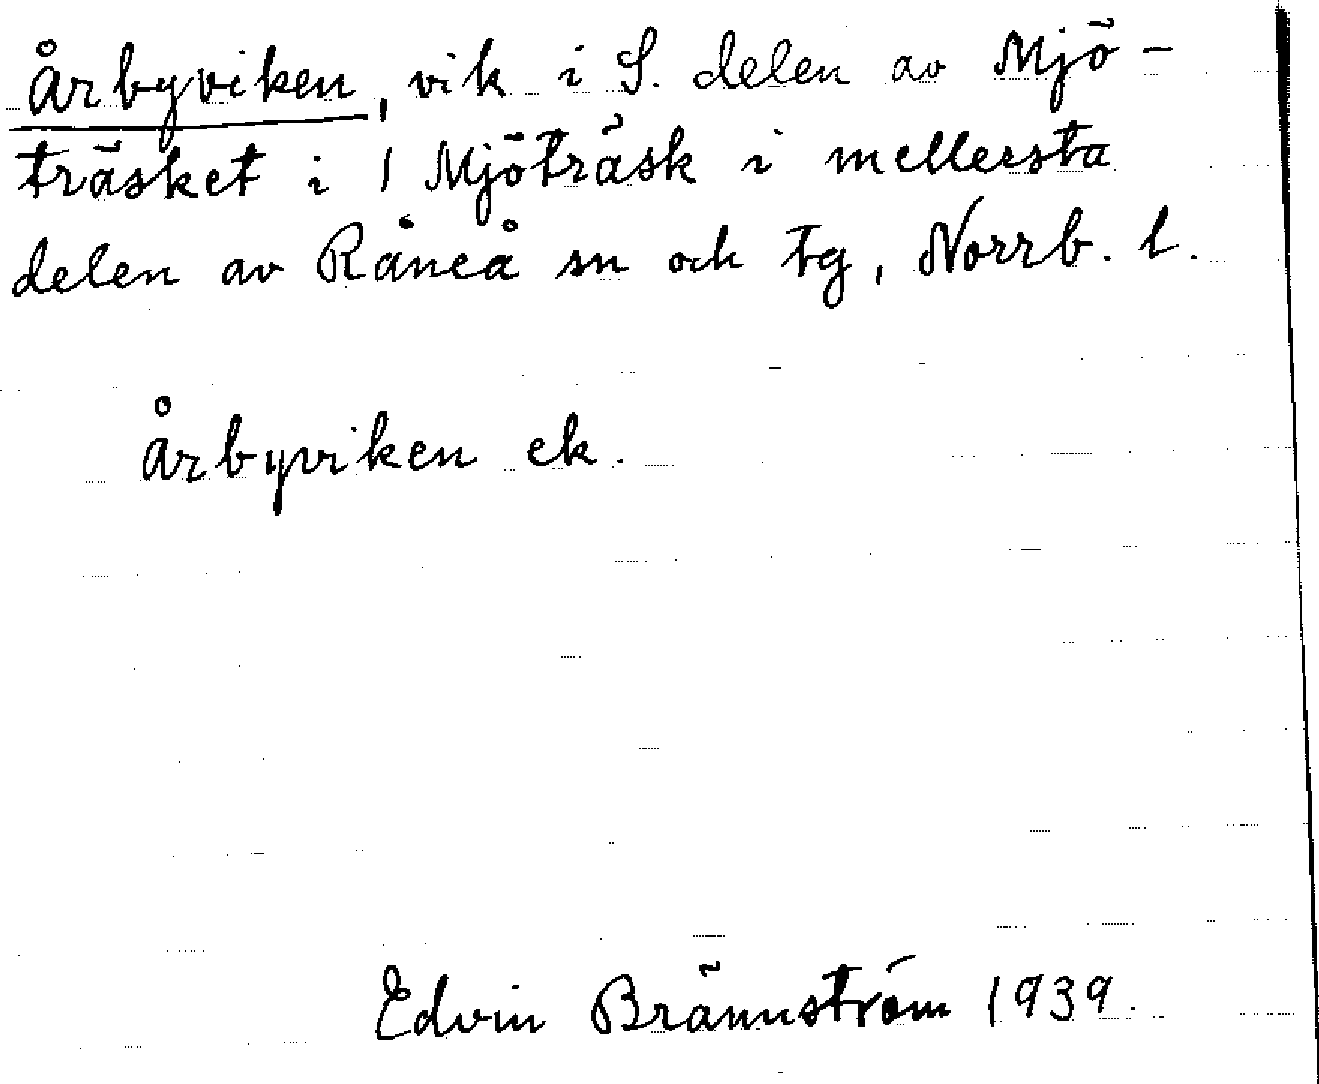 Årbyviken, vik i S. delen av Mjö-
träsket i / Mjöträsk i mellersta
delen av Råneå sn och tg, Norrb. l.
Årbyviken ek.
Edvin Brännström 1939.